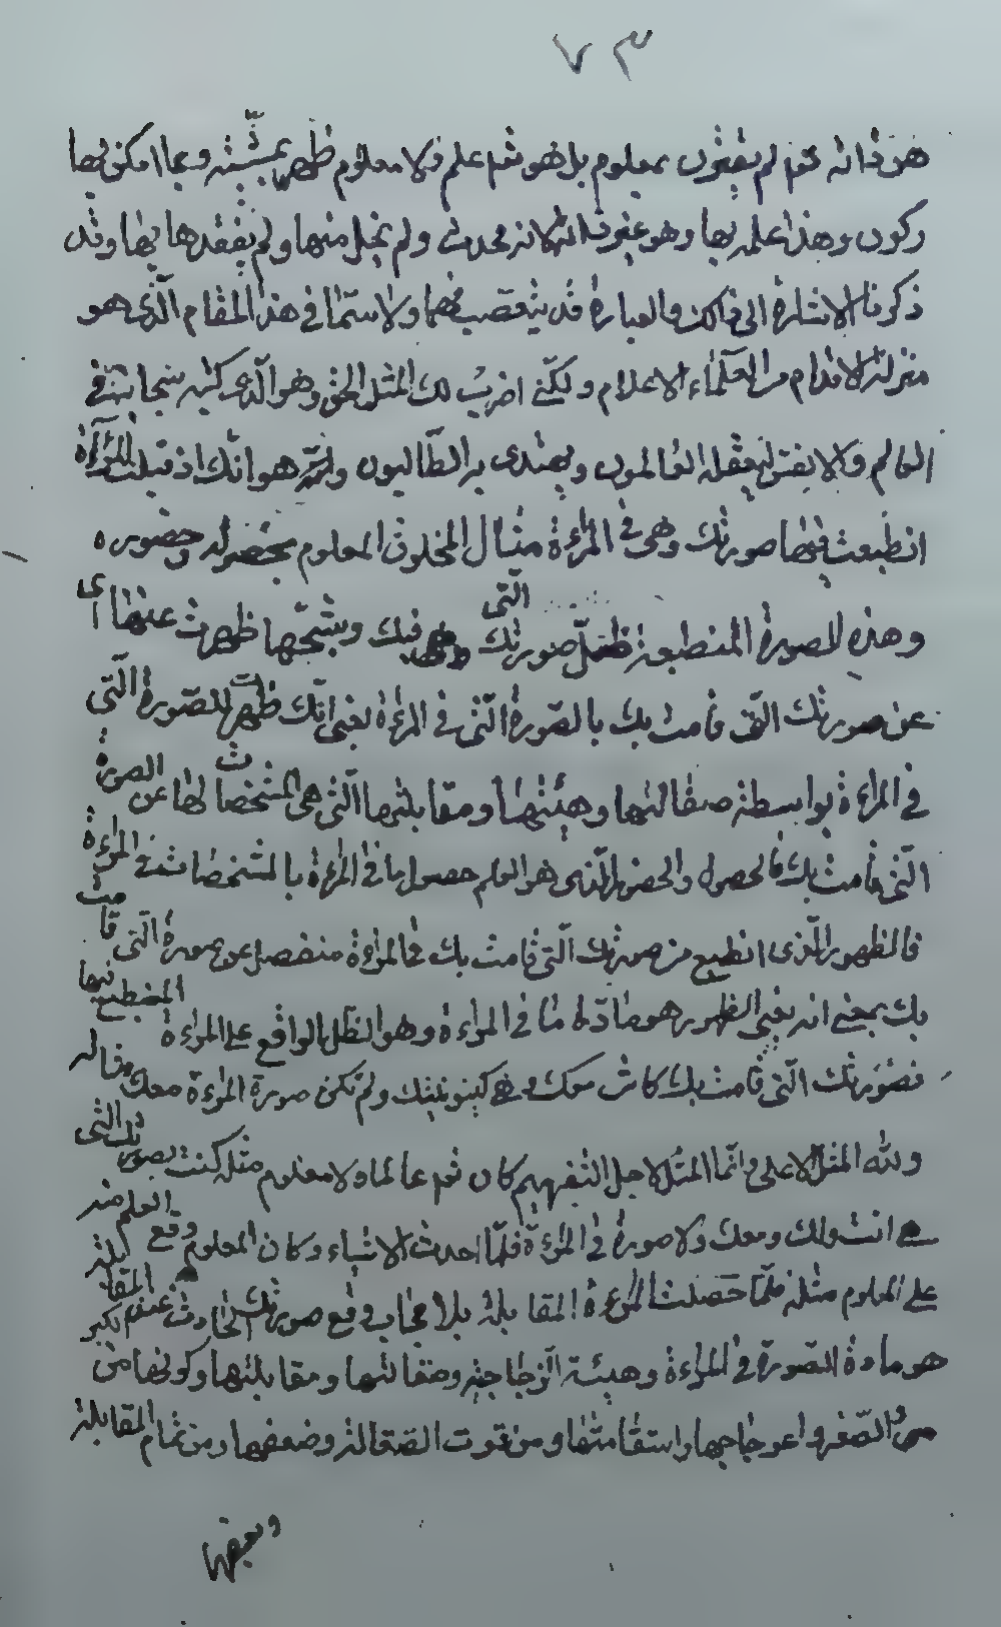 ٧٣
هو ذاته نعم لم يقترن بمعلوم بل هو نعم علم ولا معلوم ظهر بمشيته وبما امكن بها
وكون وهذا علمه بها وهو غير ذاته لانه محدث ولم يخل منها ولم يفقدها بها وقد
ذكرنا الاشارة الى ذلك والعبارة قد يتعصب فهما ولاسيما في هذا المقام الذي هو
منزلة الاقدام من العلماء الاعلام ولكني اضرب لك المثل الحق وهو الذي كتبه سبحانه في
العالم ولا يعقله العالمون ويهتدى به الطالبون وهو انك اذ قابلت المرآة
انطبعت فيها صورتك وهي في المرءة مثال المخلوق المعلوم بحصوله وحضوره
وهذه الصورة المنطبعة ظل صورتك التي فيك وشبحها ظهرت عنها اى
عن صورتك التي قامت بك بالصورة التي في المرءة يعني انك ظهرت للصورة التي
في المراءة بواسطة صقالتها وهيئتها ومقابلتها التي هي المشخصات لها عن الصورة
التي قامت بك فالحصول والحضور الذي هو العلم حصول ما في المرءة بالمشخصات في المراءة
فالظهور الذي انطبع من صورتك التي قامت بك في المراءة منفصل عن صورة التي قامت
بك بمعنى انه يعني الظهور هو مادة ما في المراءة وهو الظل الواقع على المراءة المنطبع فيها
فصورتك التي قامت بك كانت معك في كينونيتك ولم تكن صورة المراءة معك مثاله
ولله المثل الاعلى وانما المثل لاجل التفهيم كان نعم عالما ولا معلوم مثله كنت بصورتك التي
هي انت ولك ومعك ولا صورة في المرءة فلما احدث الاشياء وكان المعلوم وقع العلم منه
على المعلوم مثله فلما حصلت المرءة المقابلة بلا حجاب وقع صورتك
هو مادة الصورة في المراءة وهيئة الزجاجة وصقالتها ومقابلتها وكونها من
الصغر واعوجاجها واستقامتها ومن قوت الصقالة وضعفها ومن تمام المقابلة
وبعضها